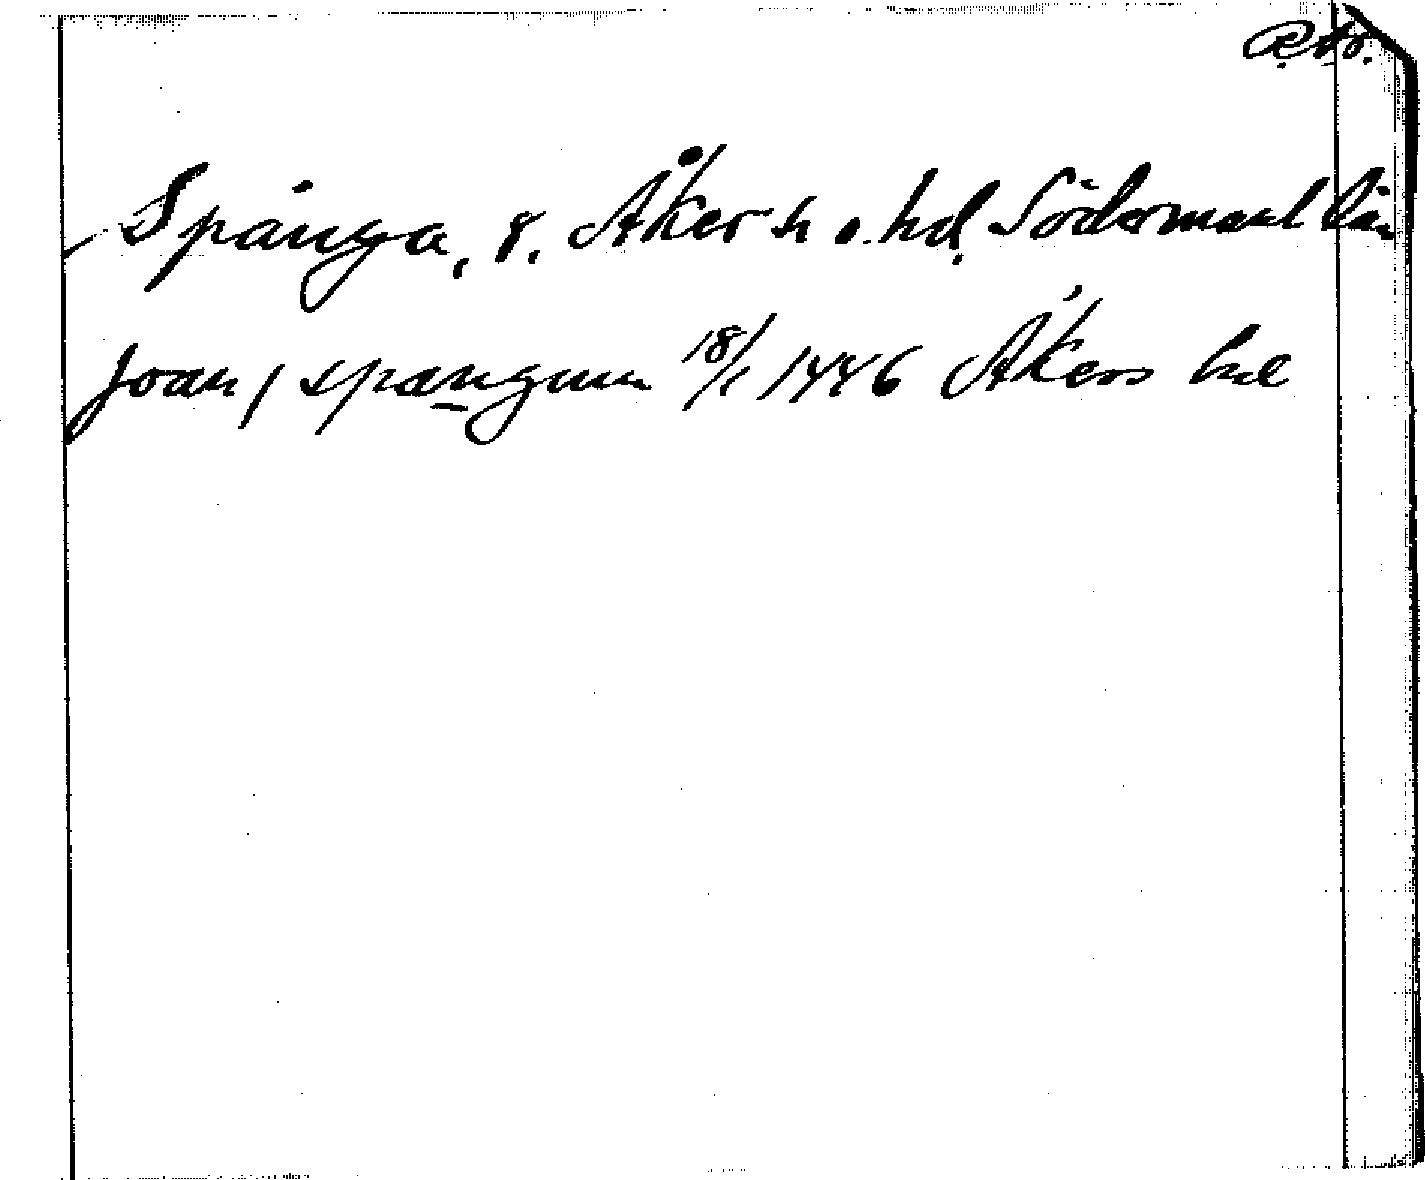 Spånga, g. Åker sn o. hd. Södermanl län
Joan j spangum 18/1 1446 Åkers hd